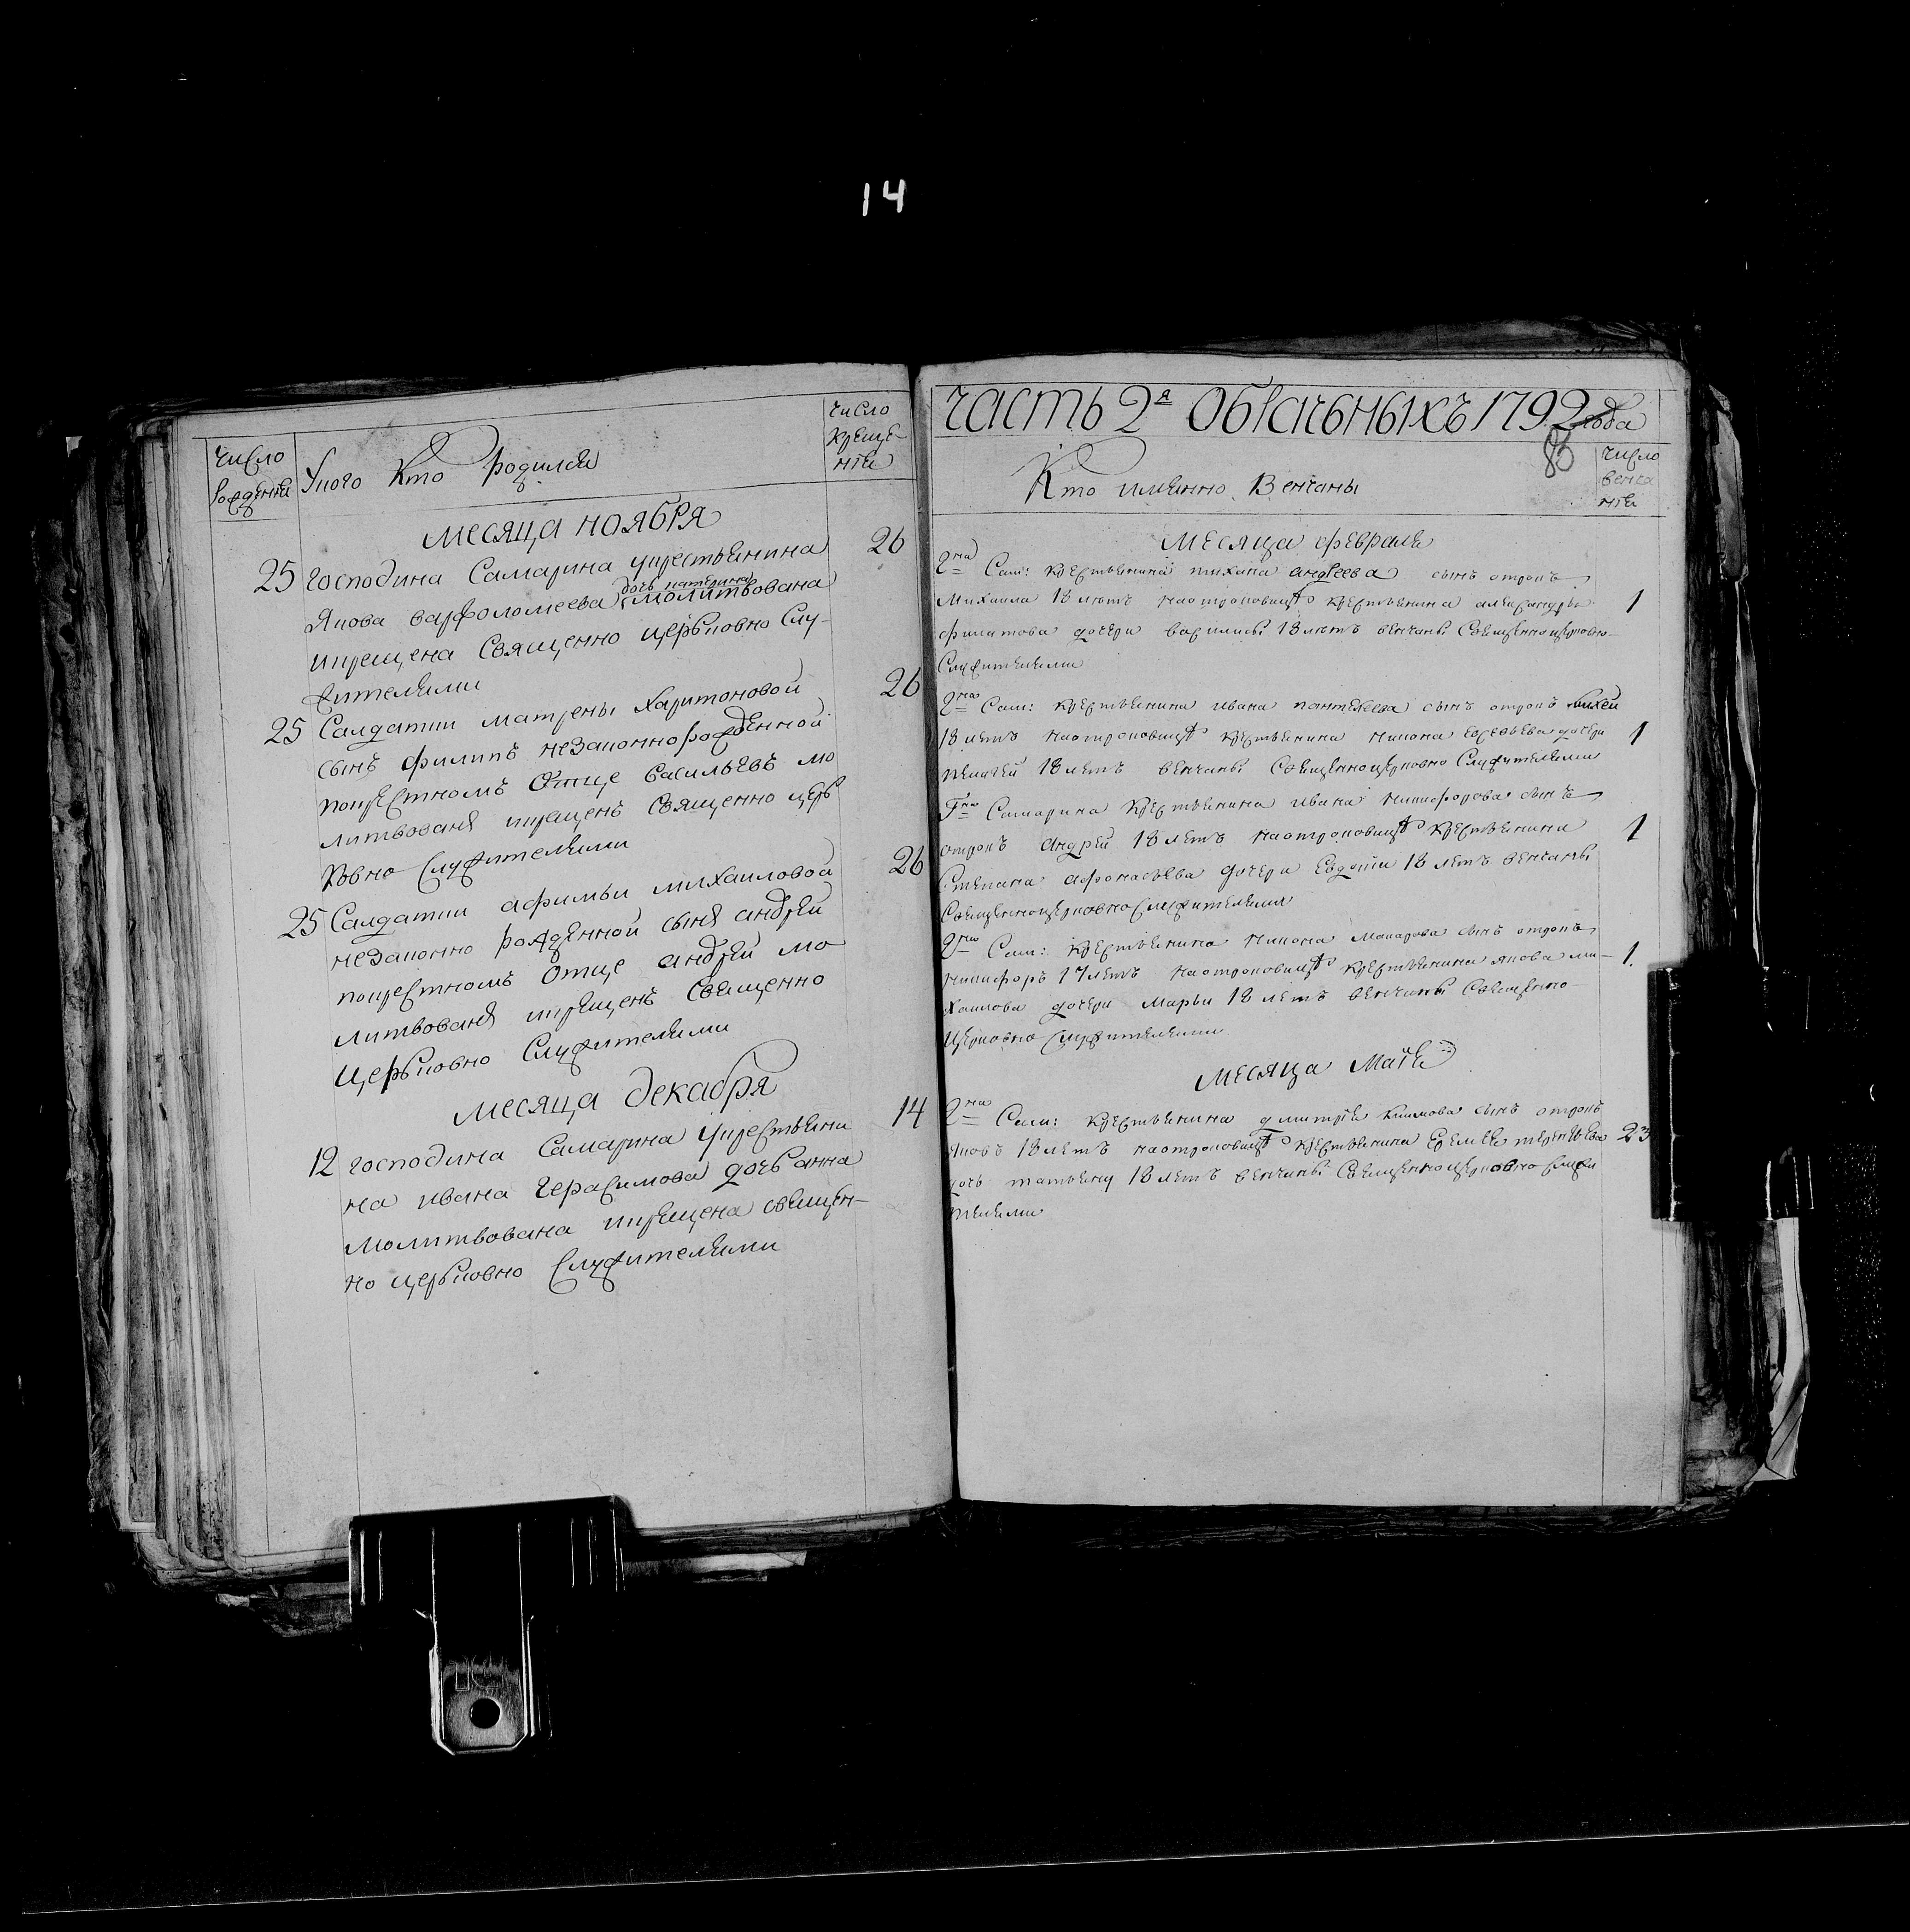 14
число
рождения
У кого Кто родился
число
креще-
ния
месяца ноября
25 господина Самарина укрестьянина 26
Якова варфоломеева дочь катерина молитвована
икрещена Священно церьковно Слу-
жителями
25 Салдатки матрены Харитоновой 26
сынъ филипъ незаконнорожденной
покрестномъ Отце васильевъ мо
литвованъ икрещенъ Священно церь
ковно Служителями
25 Салдатки афимьи михаиловой 26
незаконно рожденной сынъ андрей
покрестномъ Отце андрей мо
литвованъ икрещенъ Священно
церьковно Служителями
месяца декабря
12 господина Самарина укрестьяни 14
на ивана герасимова дочь анна
молитвована икрещена священ-
но церьковно Служителями
часть 2я Обрачьныхъ 1792 года
83
Кто имянно Венчаны
число
венча
ния
месяца февраля
Гна Сам: крестьянина тихана андреева сынъ отрокъ
Михаила 18 летъ наотроковице крестьянина александры 1
филатова дочери василисы 18 летъ венчаны Священноцерковно-
Служителями
Гна Сам: крестьянина ивана пантелеева сынъ отрокъ михей
18 летъ наотроковице крестьянина никона евсевьева дочери 1
пелагеи 18 летъ венчаны Священноцерковно Служителями
Гна Самарина крестьянина ивана никифорова сынъ
отрокъ андрей 18 летъ наотроковице крестьянина 1
Степана афонасьева дочери Евдокии 18 летъ венчаны
Священноцерковно Служителями
Гна Сам: крестьянина никона макарова сынъ отрокъ
никифоръ 17 летъ наотроковице крестьянина якова ми- 1.
хаилова дочери марьи 18 летъ венчаны Священно-
церковно Служителями
месяца Маия
Гна Сам: крестьянина дмитрия климова сынъ отрокъ
яковъ 18 летъ наотроковице крестьянина Еремея терентьева 23
дочь татьяну 18 летъ венчаны Священноцерковно Служи
телями